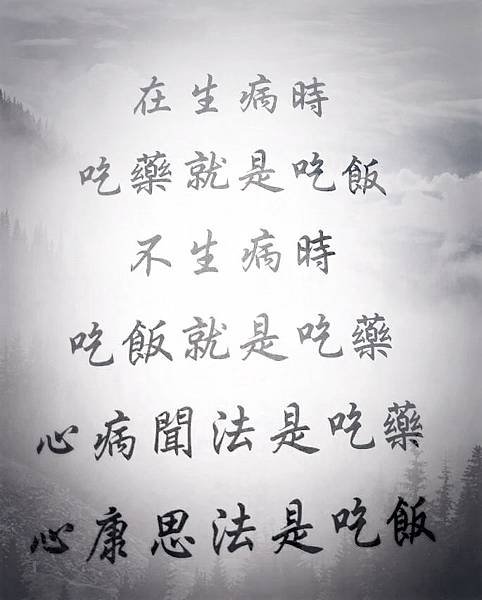 在生病時
吃藥就是吃飯
不生病時
吃飯就是吃藥
心病聞法是吃藥
心康思法是吃飯